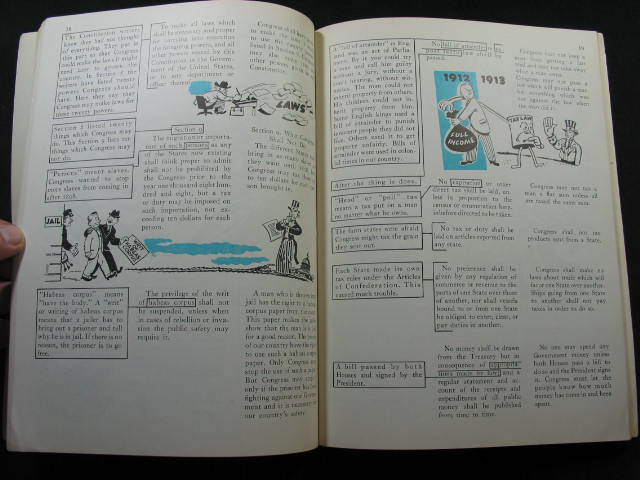 38
The Constitution writers
knew they had not thought
of everything. They put in
this part so that Congress
could make the laws it might
need later to govern the
country. In Section 8 the
writers have listed twenty
powers Congress should
have. Here they say that
Congress may make laws for
these twenty powers.
To make all laws which
shall be necessary and proper
for carrying into execution
the foregoing powers, and all
other powers vested by this
Constitution in the Govern-
ment of the United States,
or in any department or
officer thereof.
LAWS
Section 8 listed twenty
things which Congress may
do. This Section 9 lists ten
things which Congress may
not do.
"Persons" means slaves.
Congress wanted to stop
more slaves from coming in
after 1808.
Section 9
The migration or importa-
tion of such persons as any
of the States now existing
shall think proper to admit
shall not be prohibited by
the Congress prior to the
year one thousand eight hun-
dred and eight, but a tax
or duty may be imposed on
such importation, not ex-
ceeding ten dollars for each
person.
Section 9. What Congress
Shall Not Do
JAIL
"Habeas corpus" means
"have the body." A "writ"
or writing of habeas corpus
means that a jailer has to
bring out a prisoner and tell
why he is in jail. If there is no
reason, the prisoner is to go
free.
The privilege of the writ
of habeas corpus shall not
be suspended, unless when
in cases of rebellion or inva-
sion the public safety may
require it.
A man who is thrown in
jail has the right to a habeas
corpus paper
This paper makes the
show that the man is in jail
for a good reason. The people
of our country have the right
to use such a habeas corpus
paper. Only Congress can
stop the use of such a paper.
But Congress may stop
only if the prisoner has been
fighting against our Govern-
ment and it is necessary for
our country's safety.
39
A "bill of attainder" in Eng-
land was an act of Parlia-
ment. By it you could try
a man and call him guilty
without a jury, without a
court hearing, without wit-
nesses. The man could not
will property from him.
His children could not in-
herit property from him.
Some English kings used a
bill of attainder to punish
innocent people they did not
like. Others used it to get
property unfairly. Bills of
attainder were used in colon-
ial times in our country.
No bill of attainder or ex
post facto law shall be
passed.
1912 1913
FULL
INCOME
TAX LAW
After the thing is done.
"Head" or "poll" tax
means a tax put on a man
no matter what he owns.
No capitation or other
direct tax shall be laid, un-
less in proportion to the
census or enumeration here-
inbefore directed to be taken.
Congress may not tax a
man a flat sum unless all
are taxed the same sum.
The farm states were afraid
Congress might tax the grain
they sent out.
No tax or duty shall be
laid on articles exported from
any state.
Congress shall not tax
products sent from a State.
Each State made its own
tax rules under the Articles
of Confederation. This
caused much trouble.
No preference shall be
given by any regulation of
commerce or revenue to the
ports of one State over those
of another, nor shall vessels
bound to or from one State
be obliged to enter, clear, or
pay duties in another.
Congress shall make no
laws about trade which will
favor one State over another.
Ships going from one State
to another shall not pay
taxes in order to do so.
A bill passed by both
Houses and signed by the
President.
No money shall be drawn
from the Treasury but in
consequence of appropria-
tions made by law; and a
regular statement and ac-
count of the receipts and
expenditures of all public
money shall be published
from time to time.
No one may spend any
Government money unless
both Houses pass a bill to
do so and the President signs
it. Congress must let the
people know how much
money has come in and been
spent.